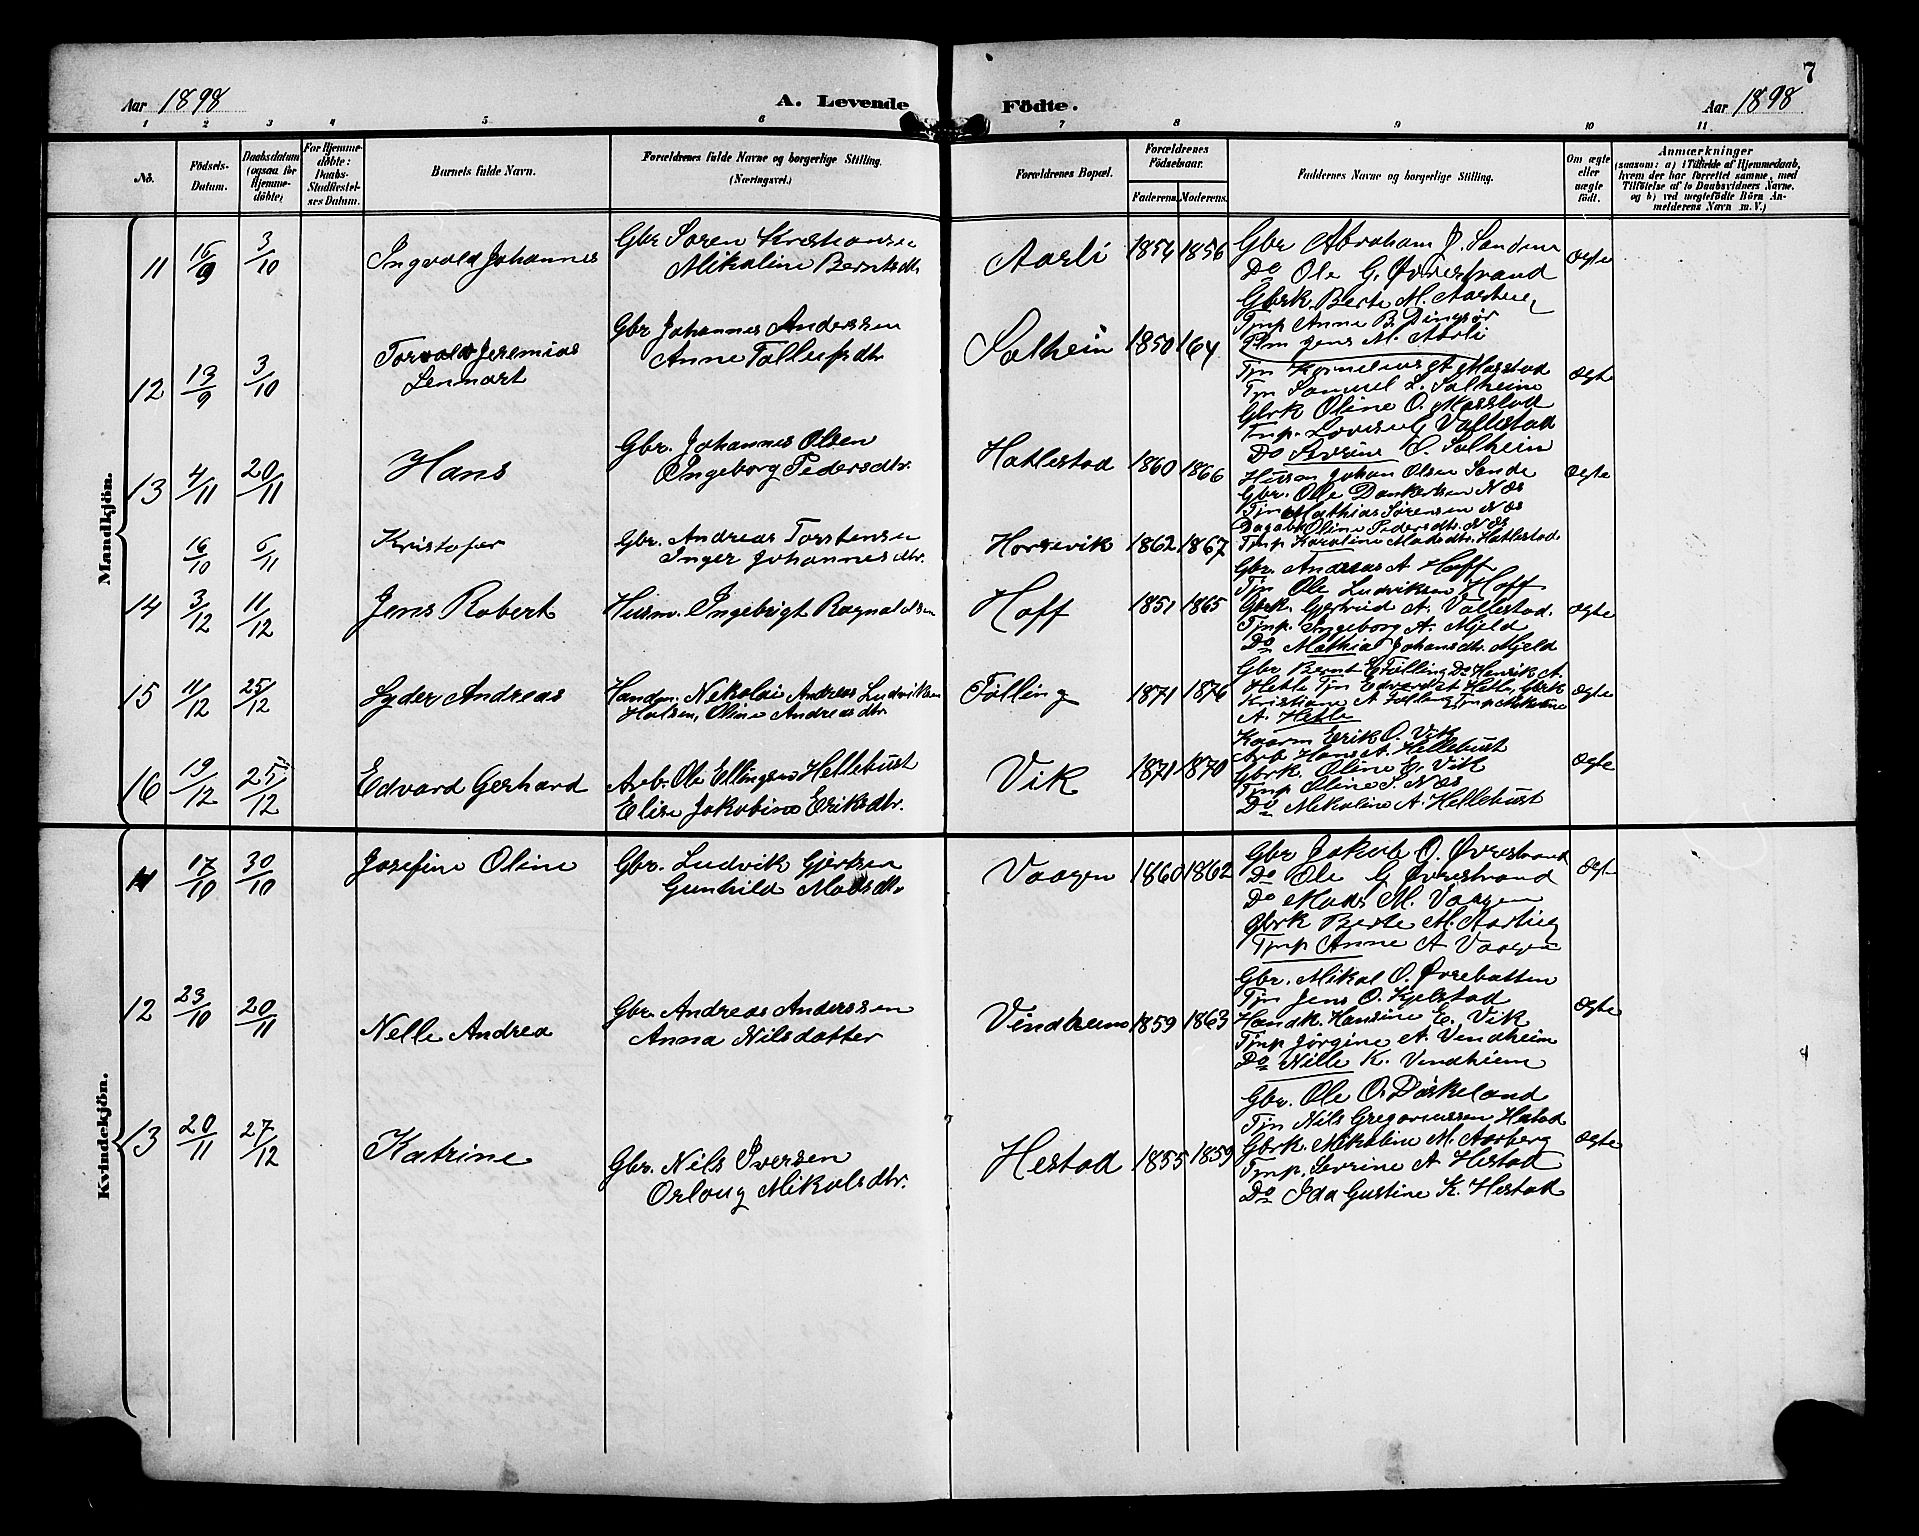 7
Aar 1898
A. Levende Födte.
Aar 1898
1 2 3 4 5 6 7 8 9 10 11
No.
Födsels-Datum.
Daabsdatum (ogsaa for Hjemmedöbte)
For Hjemmedöbte: Daabs-Stadfæstelses Datum.
Barnets fulde Navn.
Forældrenes fulde Navne og borgerlige Stilling. (Næringsvei.)
Forældrenes Bopæl.
Forældrenes Födselsaar.
Faderens. Moderens.
Faddernes Navne og borgerlige Stilling.
Om ægte eller uægte födt.
Anmærkninger
(saasom: a) i Tilfælde af Hjemmedaab, hvem der har forrettet samme, med Tilföielse af to Daabsvidners Navne. og b) ved uegtefödte Börn Anmelderens Navn m. V.)
Mandkjön.
11 16/9 3/10 Ingvald Johannes
Gbr Søren Kristiansen
Mikaline Berntsdtr.
Aarli 1854 1856
Gbr Abraham J. Sanden
Do Ole G. Øvrestrand
Gbrk. Berte M. Aarberg
Tjnp Anne B. Dingsør
Plm Jens M. Aarli
Ægte
12 13/9 3/10 Torvald Jeremias
Lenmart
Gbr Johannes Anderssen
Anne Tollefsdtr
Solheim 1850 164
Tjn Kornelius Masstad
Tjn Samuel L. Solheim
Gbrk Oline O. Masstad
Tnp. Lovise Vallestad
Do Severine O. Solheim
Ægte
13 4/11 20/11 Hans
Gbr. Johannes Olsen
Ingeborg Pedersdtr.
Hatlestad 1860 1866
Husm Johan Olsen Sande
Gbr. Ole Dankertsen Næs
Tjn Mathias Sørensen Næs
Oline Pedersdtr. Næs
Tjnp Karoline Madsdtr. Hatlestad
Ægte
16/10 6/11 Kristofer
Gbr. Andreas Torstensen
Inger Johannesdtr.
Horsevik 1862 1867
14 3/12 11/12 Jens Robert
Husm. Ingebrigt Ragnaldsen
Hoff 1851 1865
Gbr. Andreas A Hoff
Tjn Ole Ludviksen Hoff
Gbrk. Gjertrud A. Vallestad.
Tjnp. Ingeborg A. Mjeld
Do Mathia Johansdtr. Mjeld
Ægte
15 11/12 25/12 Lyder Andreas
Handm. Nekolai Andreas Ludviksen
Holsen, Oline Andreasdtr
Tølling 1871 1876
Gbr Bernt E Tølling Do Henrik A.
Hetle Tjn Edvard Hetle, Gbrk
Kristiane A Tølling Tjnp Mikaline
A. Hetle
Ægte
16 19/12 25/12 Edvard Gerhard
Arb. Ole Ellingsen Hellebust
Elise Jakobine Eriksdtr.
Vik 1871 1870
Kaarm Erik O. Vik
Arb Hans A. Hellebust
Gbrk. Oline E. Vik
Tjnp Oline S. Næs
Do Mikaline A. Hellebust
Ægte
Kvindekjön.
11 17/10 30/10 Josefine Oline
Gbr. Ludvik Gjertsen
Gunhild Madsdtr
Vaagen 1860 1862
Gbr Jakob O. Øvrestrand
Do Ole G Øvrestrand
Do Mads M. Vaagen
Gbrk Berte M. Aarberg
Tjnp Anne A Vaagen
Ægte
12 23/10 20/11 Nelle Andrea
Gbr. Andreas Anderssen
Anna Nilsdatter
Vindheim 1859 1863
Gbr. Mikal O. Øvrebotten
Tjn Jens O. Kjelstad
Handk. Hansine E. Vik
Tjnp Jørgine A. Vindheim
Do Nille K. Vindheim
Ægte
13 20/11 27/12 Katrine
Gbr. Nils Iversen
Orloug Mikalsdtr.
Hestad 1855 1859
Gbr. Ole O. Døskeland
Tjn Nils Gregoriussen Hestad
Gbrk. Mikaline M. Aarberg
Tjnp. Sevrine A Hestad
Do Ida Gustine K. Hestad
Ægte